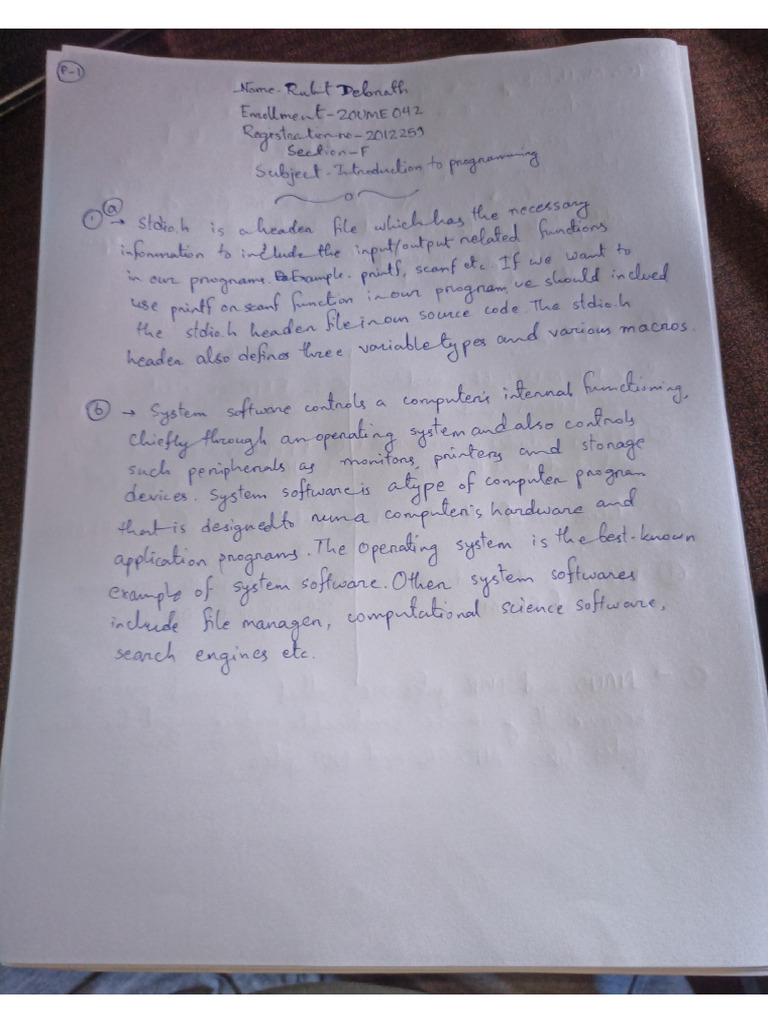 P-1
Name - Rohit Debnath
Enrollment - 20UME042
Registration no - 2012259
Section - F
Subject - Introduction to programming
1 a → Stdio.h is a header file which has the necessary
information to include the input/output related functions
in our programs. Example - printf, scanf etc. If we want to
use printf or scanf function in our program, we should inclued
the stdio.h header file in our source code. The stdio.h
header also defines three variable types and various macros.
b → System software controls a computer's internal functioning,
chiefly through an operating system and also controls
such peripherals as monitors, printers and storage
devices. System software is a type of computer program
that is designed to run a computer's hardware and
application programs. The operating system is the best-known
example of system software. Other system softwares
include file manager, computational science software,
search engines etc.